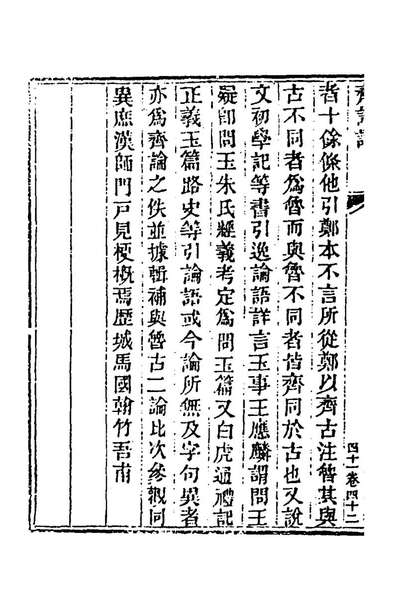 齊論語
四十一卷四十二
者十餘條他引鄭本不言所從鄭以齊古注魯其與
古不同者爲魯而與魯不同者皆齊同於古也又說
文初學記等書引逸論語詳言玉事王應麟謂問王
疑卽問玉朱氏經義考定爲問玉篇又白虎通禮記
正義玉篇路史等引論語或今論所無及字句異者
亦爲齊論之佚並據輯補與魯古二論比次參觀同
異庶漢師門戶見梗概焉歷城馬國翰竹吾甫